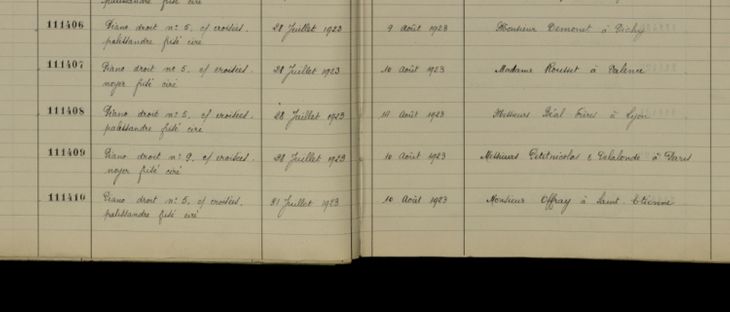 palissandre frisé ciré
111406 Piano droit nº 5, c/ croisées. 28 Juillet 1923 9 Août 1923 Monsieur Demonet à Vichy
palissandre frisé ciré
111407 Piano droit nº 5, c/ croisées. 28 Juillet 1923 10 Août 1923 Madame Rousset à Valence
noyer frisé ciré
111408 Piano droit nº 5, c/ croisées. 28 Juillet 1923 Août 1923 Messieurs Béal Frères à Lyon
palissandre frisé ciré
111409 Piano droit nº 9, c/ croisées. 28 Juillet 1923 10 Août 1923 Messieurs Petitnicolas & Delalonde à Paris
noyer frisé ciré
111410 Piano droit nº 5, c/ croisées. 31 Juillet 1923 10 Août 1923 Monsieur Offray à Saint-Etienne
palissandre frisé ciré